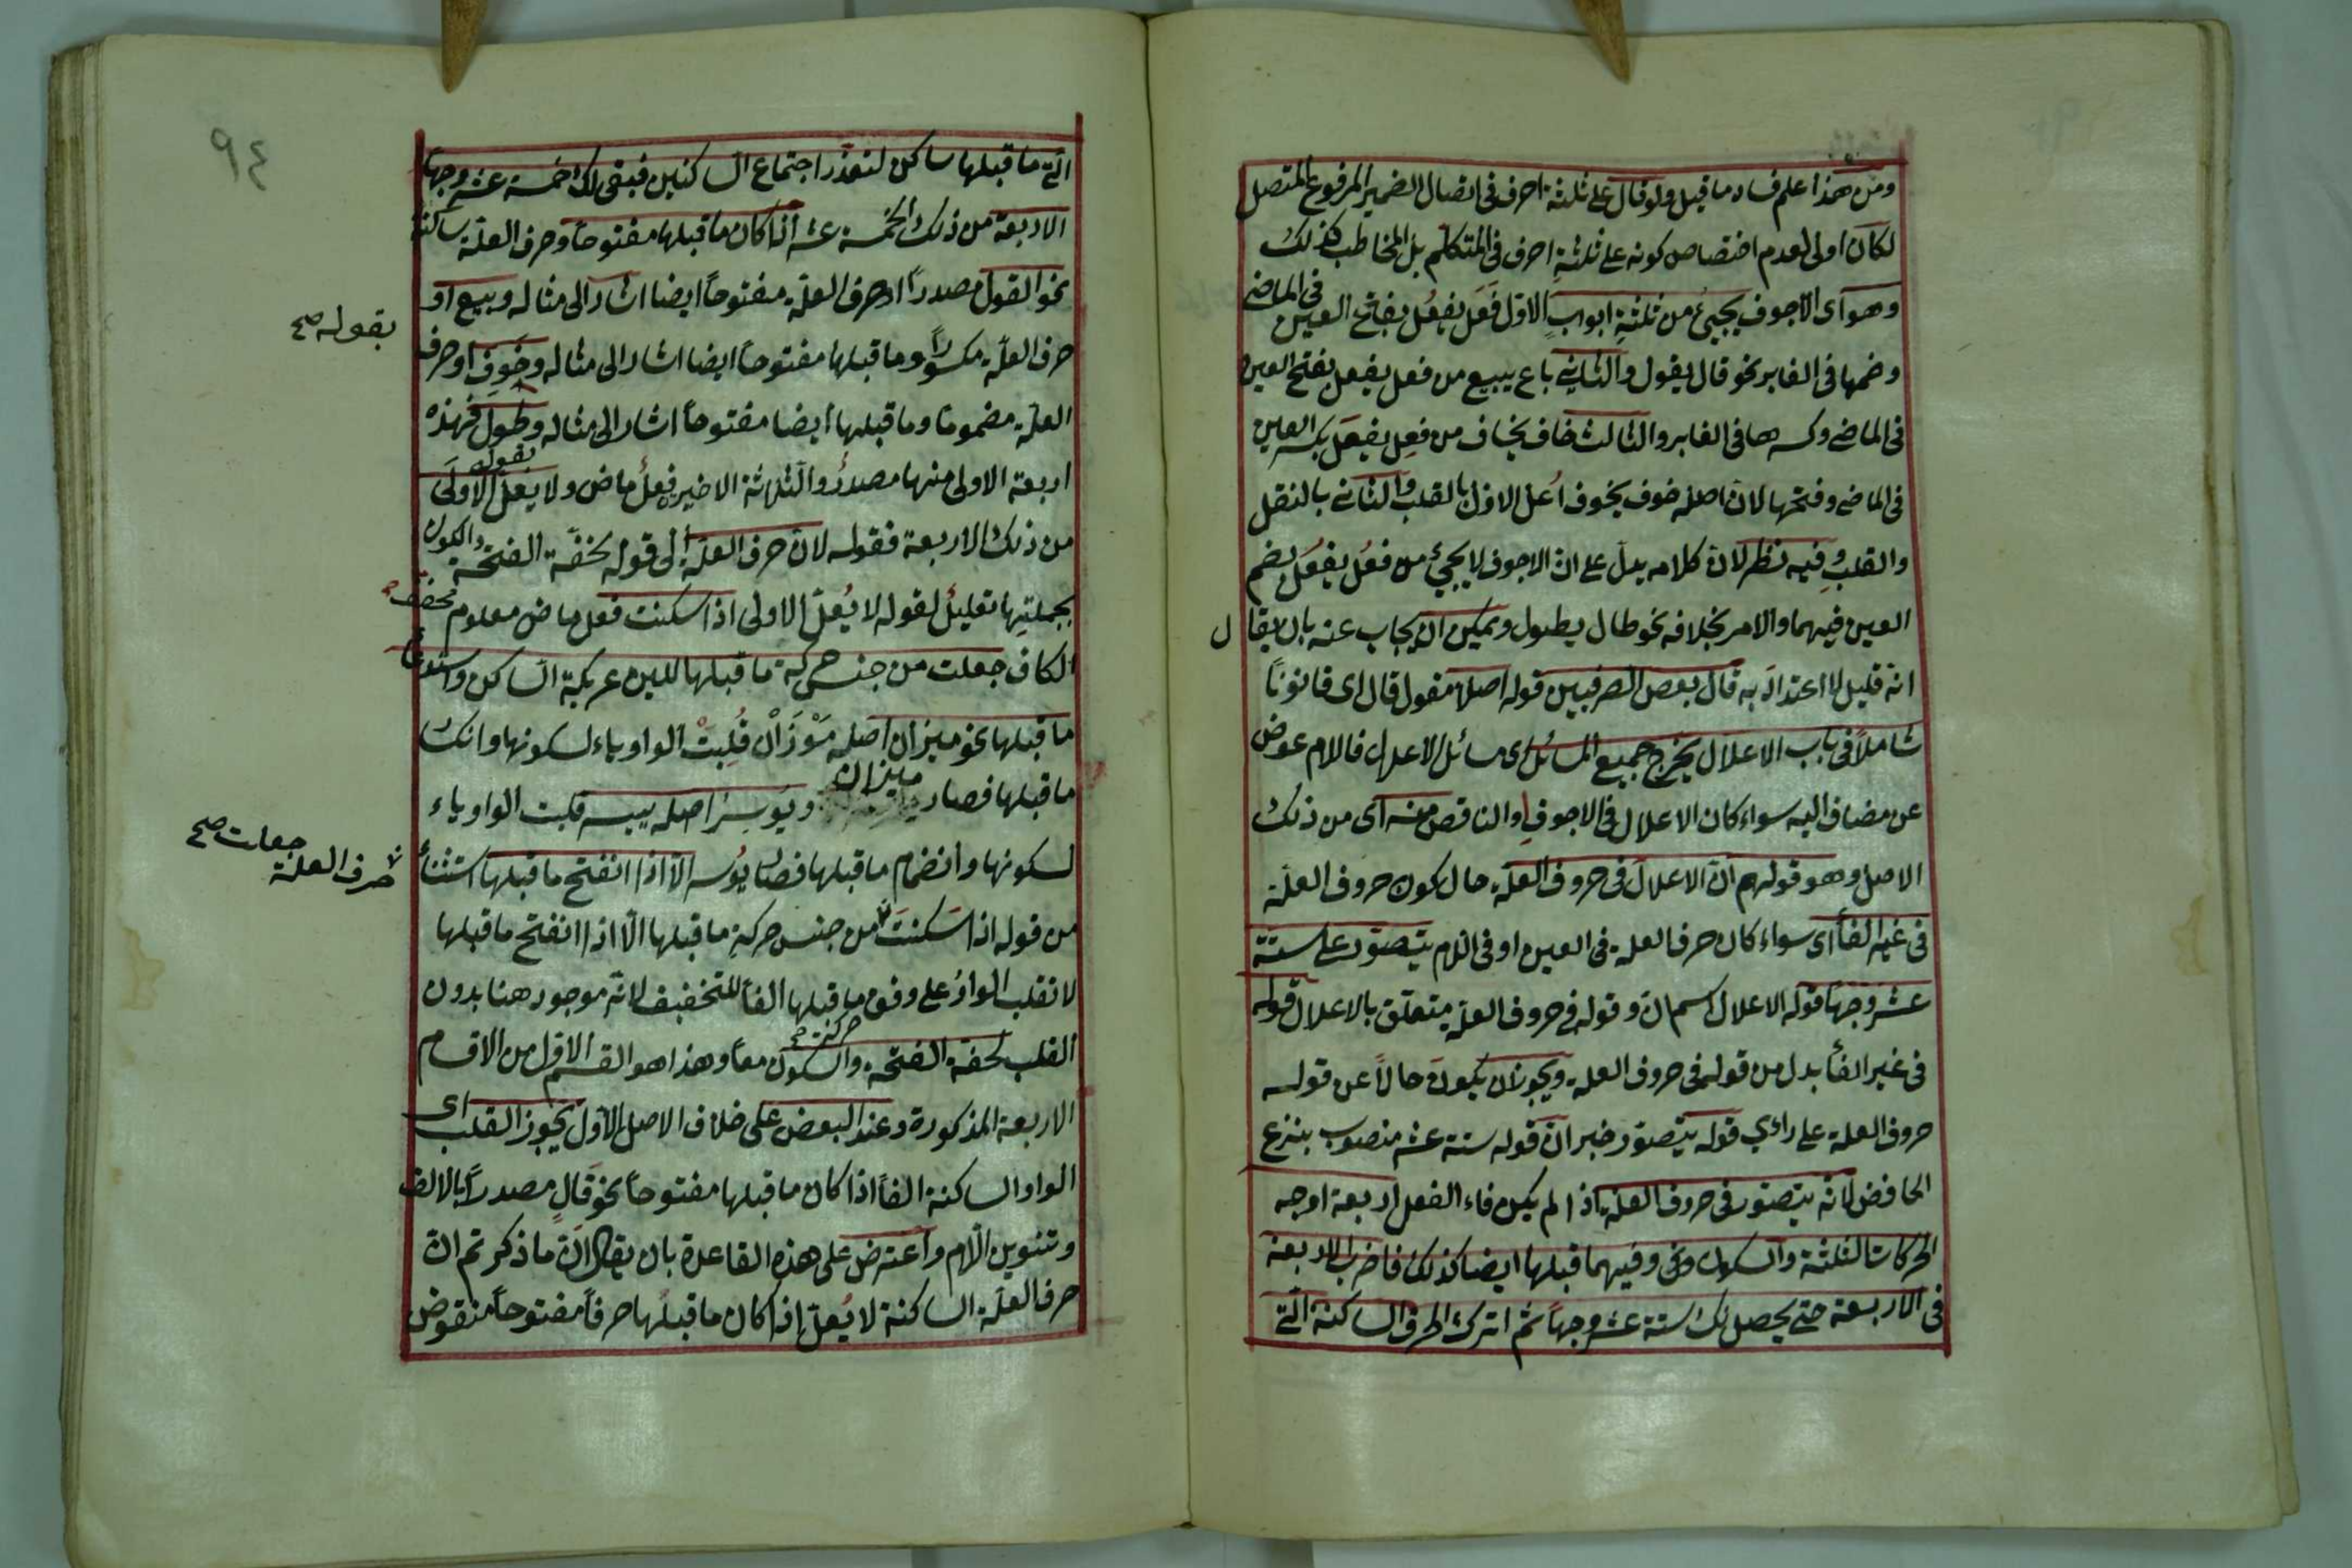 ومن هذا علم فساد ما قيل ولو قال على ثلثة احرف فى اتصال الضمير المرفوع المتصل
لكان اولى لعدم اختصاص كونه على ثلثة احرف فى المتكلم بل المخاطب كذلك
وهو اى الاجوف يجيئ من ثلثة ابواب الاول فَعَل يفعُل بفتح العين فى الماضى
وضمها فى الغابر نحو قال يقول والثانى باع يبيع من فعل يفعل بفتح العين
فى الماضى وكسرها فى الغابر والثالث خاف يخاف من فعِل يفعَل بكسر العين
فى الماضى وفتحها لان اصله خوف يخوف اُعل الاول بالقلب والثانى بالنقل
والقلب وفيه نظر لان كلامه يدل على ان الاجوف لا يجيئ من فعُل يفعُل بضم
العين فيهما والامر بخلافه نحو طال يطول ويمكن ان يجاب عنه بان يقال
انه قليل لا اعتداد به قال بعض الصرفيين قوله اصلا مقول قال اى قانونًا
شاملًا فى باب الاعلال يخرج جميع المسائل اى مسائل الاعلال فاللام عوض
عن مضاف اليه سواء كان الاعلال فى الاجوف او الناقص منه اى من ذلك
الاصل وهو قولهم ان الاعلال فى حروف العلّة حال كون حروف العلّة
فى غير الفأ اى سواء كان حرف العلة فى العين او فى اللام يتصوّر على ستة
عشر وجهًا قوله الاعلال اسم ان وقوله فى حروف العلّة متعلق بالاعلال قوله
فى غير الفأ بدل من قوله فى حروف العلة ويجوز ان يكون حالًا عن قوله
حروف العلة على رائ قوله يتصوّر خبر ان قوله ستة عشر منصوب بنزع
الخافض لانه يتصور فى حروف العلة اذا لم يكن فاء الفعل اربعة اوجه
الحركات الثلثة والسكون وفيما قبلها ايضا كذلك فاضرب الاربعة
فى الاربعة حتى يحصل لك ستة عشر وجهًا ثم اترك الحرف الساكنة الّتى
٩٤
الّتى ما قبلها ساكن لتعذّر اجتماع الساكنين فبقى لك خمسة عشر وجهًا
الاربعة من ذلك الخمسة عشر اذا كان ما قبلها مفتوحًا وحرف العلّة ساكنة
نحو القول مصدرًا او حرف العلّة مفتوحًا ايضا اشار الى مثاله وبيع او
بقوله صح
حرف العلّة مكسورًا وما قبلها مفتوحًا ايضا اشار الى مثاله وخَوِف او حرف
العلّة مضمومًا وما قبلها ايضا مفتوحاً اشار الى مثاله بقوله وطول فهذه
اربعة الاولى منها مصدرٌ والثلاثة الاخيرة فعلُ ماض ولا يعلّ الاولى
من ذلك الاربعة فقوله لان حرف العلّة الى قوله لخفّة الفتحة والسكون
بجملتها تعليلٌ لقوله لا يُعلّ الاولى اذا سكنت فعل ماض معلوم مخفف
الكاف جعلت من جنس حركة ما قبلها للين عريكة الساكن واستدعأ
ما قبلها نحو ميزان اصله مَوْزَانْ قُلِبَتْ الواو ياء لسكونها وانكسار
ما قبلها فصار ميزان ويوسر اصله ييسر قلبت الواو ياء
لسكونها وانضمام ما قبلها فصار يوسر الّا اذا انفتح ما قبلها استثنأ
حرف العلّة جعلت صح
من قوله اذا سَكنتَ من جنس حركة ما قبلها الّا اذا انفتح ما قبلها
لا تقلب الواوُ على وفق حركة ما قبلها الفأ للتخفيف لانّه موجود هنا بدون
القلب لخفة الفتحة والسكون معًا وهذا هو القسم الاول من الاقسام
الاربعة المذكورة وعند البعض على خلاف الاصل الاول يجوز القلب اى
الواو الساكنة الفأ اذا كان ما قبلها مفتوحاً نحو قالٍ مصدراً بالالف
وتنوين اللام واعترض على هذه القاعدة بان يقال انّ ما ذكرتم ان
حرف العلّة الساكنة لا يُعلّ اذا كان ما قبلها حرفاً مفتوحاً منقوض